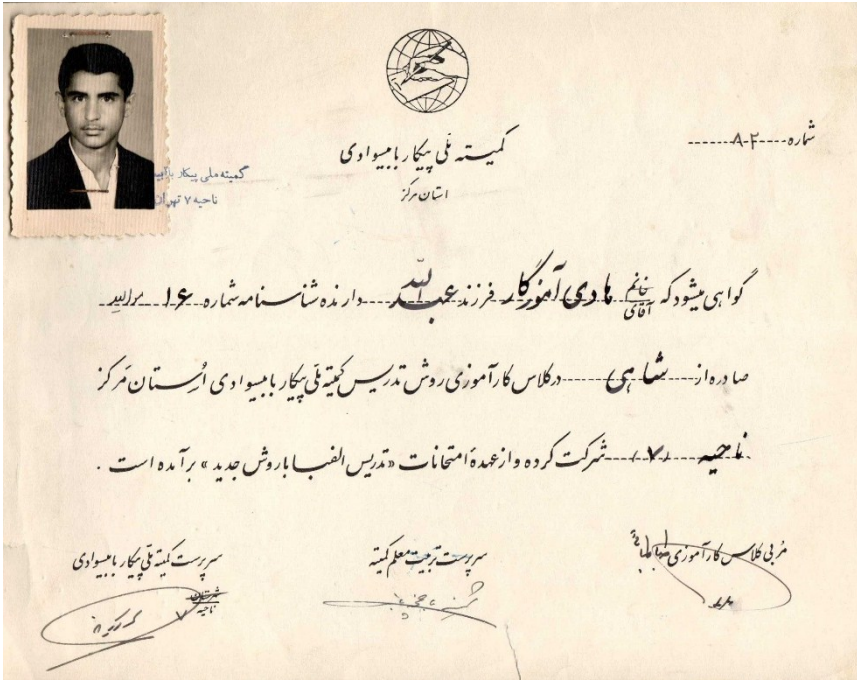 شماره ۸۰۲
کمیته ملّی پیکار با بیسوادی
استان مرکز
کمیته ملی پیکار با
ناحیه ۷ تهران
گواهی میشود که خانم آقای هادی آموزگار فرزند عبدالله دارنده شناسنامه شماره ۱۶
صادره از شاهی در کلاس کارآموزی روش تدریس کمیته ملّی پیکار با بیسوادی استان مرکز
ناحیه (۷) شرکت کرده و از عهدهٔ امتحانات «تدریس الفبا با روش جدید» برآمده است .
مربی کلاس کارآموزی طباطبائی
سرپرست تربیت معلم کمیته
سرپرست کمیته ملّی پیکار با بیسوادی
شهرستان
ناحیه ۷